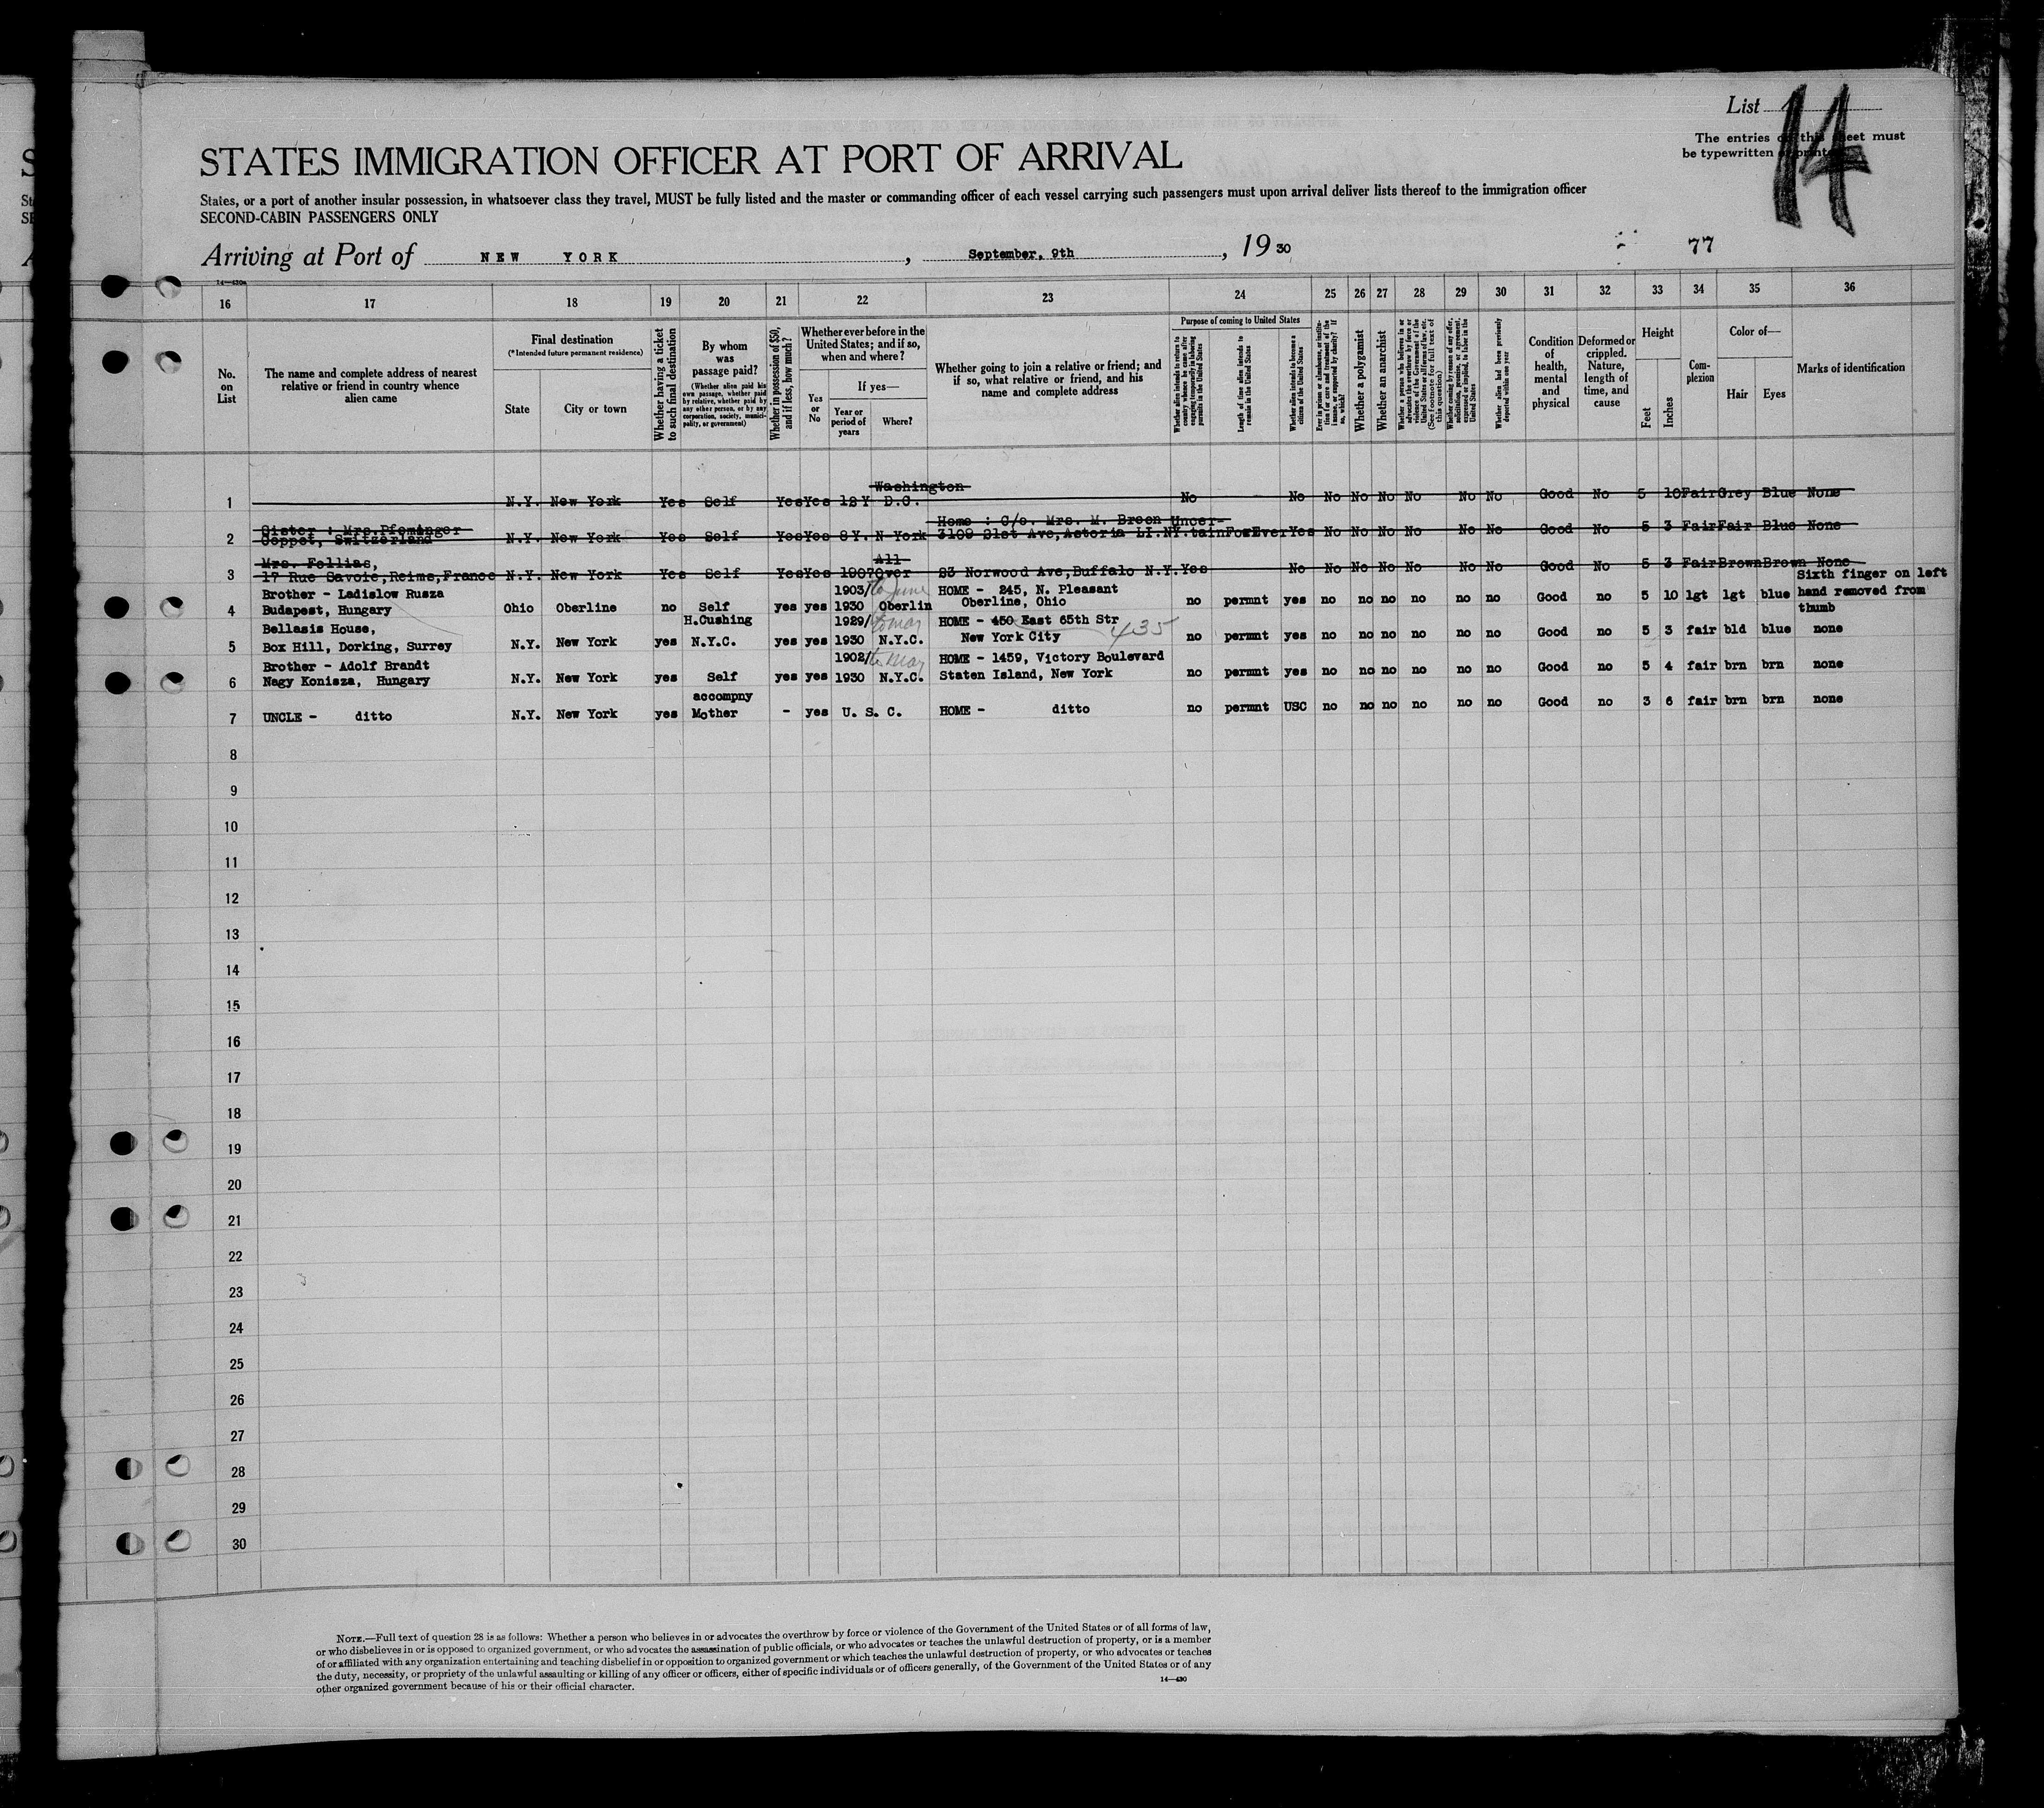 List 14
The entries on this sheet must
be typewritten or printed
STATES IMMIGRATION OFFICER AT PORT OF ARRIVAL
States, or a port of another insular possession, in whatsoever class they travel, MUST be fully listed and the master or commanding officer of each vessel carrying such passengers must upon arrival deliver lists thereof to the immigration officer
SECOND-CABIN PASSENGERS ONLY
Arriving at Port of NEW YORK, September, 9th, 1930
77
14—430
16 17 18 19 20 21 22 23 24 25 26 27 28 29 30 31 32 33 34 35 36
No.
on
List
The name and complete address of nearest
relative or friend in country whence
alien came
Final destination
(*Intended future permanent residence)
State
City or town
Whether having a ticket
to such final destination
By whom
was
passage paid?
(Whether alien paid his
own passage, whether paid
by relative, whether paid by
any other person, or by any
corporation, society, munici-
pality, or government)
Whether in possession of $50,
and if less, how much?
Whether ever before in the
United States; and if so,
when and where?
Yes
or
No
If yes—
Year or
period of
years
Where?
Whether going to join a relative or friend; and
if so, what relative or friend, and his
name and complete address
Purpose of coming to United States
Whether alien intends to return to
country whence he came after
engaging temporarily in laboring
pursuits in the United States
Length of time alien intends to
remain in the United States
Whether alien intends to become a
citizen of the United States
Ever in prison or almshouse, or institu-
tion for care and treatment of the
insane, or supported by charity? If
so, which?
Whether a polygamist
Whether an anarchist
Whether a person who believes in or
advocates the overthrow by force or
violence of the Government of the
United States or all forms of law, etc.
(See footnote for full text of
this question)
Whether coming by reason of any offer,
solicitation, promise, or agreement,
expressed or implied, to labor in the
United States
Whether alien had been previously
deported within one year
Condition
of
health,
mental
and
physical
Deformed or
crippled.
Nature,
length of
time, and
cause
Height
Feet
Inches
Com-
plexion
Color of—
Hair
Eyes
Marks of identification
Washington
1 N.Y. New York Yes Self Yes Yes 12Y D.C. No No No No No No No No Good No 5 10 Fair Grey Blue None
Sister : Mrs. Home : C/o. Mrs. M. Breen Uncer-
2 Coppet, Switzerland N.Y. New York Yes Self Yes Yes 8Y. N York 3109 21st Ave, Astoria LI.NY. tain ForEver Yes No No No No No No Good No 5 3 Fair Fair Blue None
Mrs. Follias, All
3 17 Rue Savoie, Reims, France N.Y. New York Yes Self Yes Yes 1907 Over 83 Norwood Ave, Buffalo N.Y. Yes No No No No No No No Good No 5 3 Fair Brown Brown None
Brother - Ladislow Rusza 1903/ to June HOME - 245, N. Pleasant Sixth finger on left
4 Budapest, Hungary Ohio Oberline no Self yes yes 1930 Oberlin Oberline, Ohio no permnt yes no no no no no no Good no 5 10 lgt lgt blue hand removed from
thumb
Bellasis House, H.Cushing 1929/ to may HOME - 450 East 65th Str 435
5 Box Hill, Dorking, Surrey N.Y. New York yes N.Y.C. yes yes 1930 N.Y.C. New York City no permnt yes no no no no no no Good no 5 3 fair bld blue none
Brother - Adolf Brandt 1902/ to May HOME - 1459, Victory Boulevard
6 Nagy Konisza, Hungary N.Y. New York yes Self yes yes 1930 N.Y.C. Staten Island, New York no permnt yes no no no no no no Good no 5 4 fair brn brn none
accompny
7 UNCLE - ditto N.Y. New York yes Mother - yes U. S. C. HOME - ditto no permnt USC no no no no no no Good no 3 6 fair brn brn none
8
9
10
11
12
13
14
15
16
17
18
19
20
21
22
23
24
25
26
27
28
29
30
NOTE.—Full text of question 28 is as follows: Whether a person who believes in or advocates the overthrow by force or violence of the Government of the United States or of all forms of law,
or who disbelieves in or is opposed to organized government, or who advocates the assassination of public officials, or who advocates or teaches the unlawful destruction of property, or is a member
of or affiliated with any organization entertaining and teaching disbelief in or opposition to organized government or which teaches the unlawful destruction of property, or who advocates or teaches
the duty, necessity, or propriety of the unlawful assaulting or killing of any officer or officers, either of specific individuals or of officers generally, of the Government of the United States or of any
other organized government because of his or their official character.
14—430